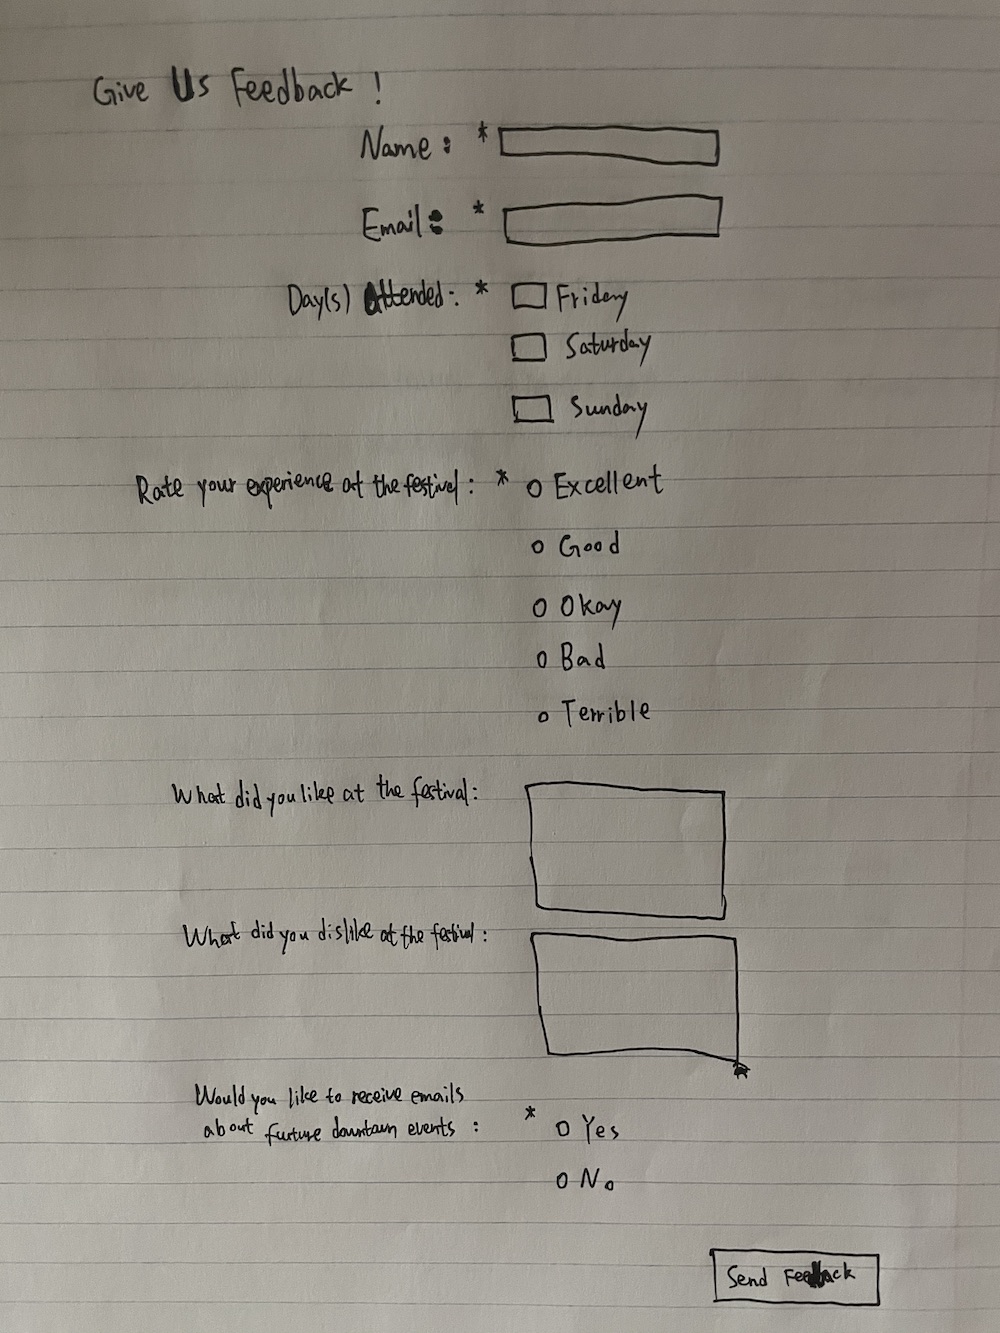 Give Us Feedback !
Name : *
Email : *
Day(s) Attended : * Friday
Saturday
Sunday
Rate your experience at the festival : * Excellent
Good
Okay
Bad
Terrible
What did you like at the festival :
What did you dislike at the festival :
Would you like to receive emails
about furture downtown events : * Yes
No
Send Feedback